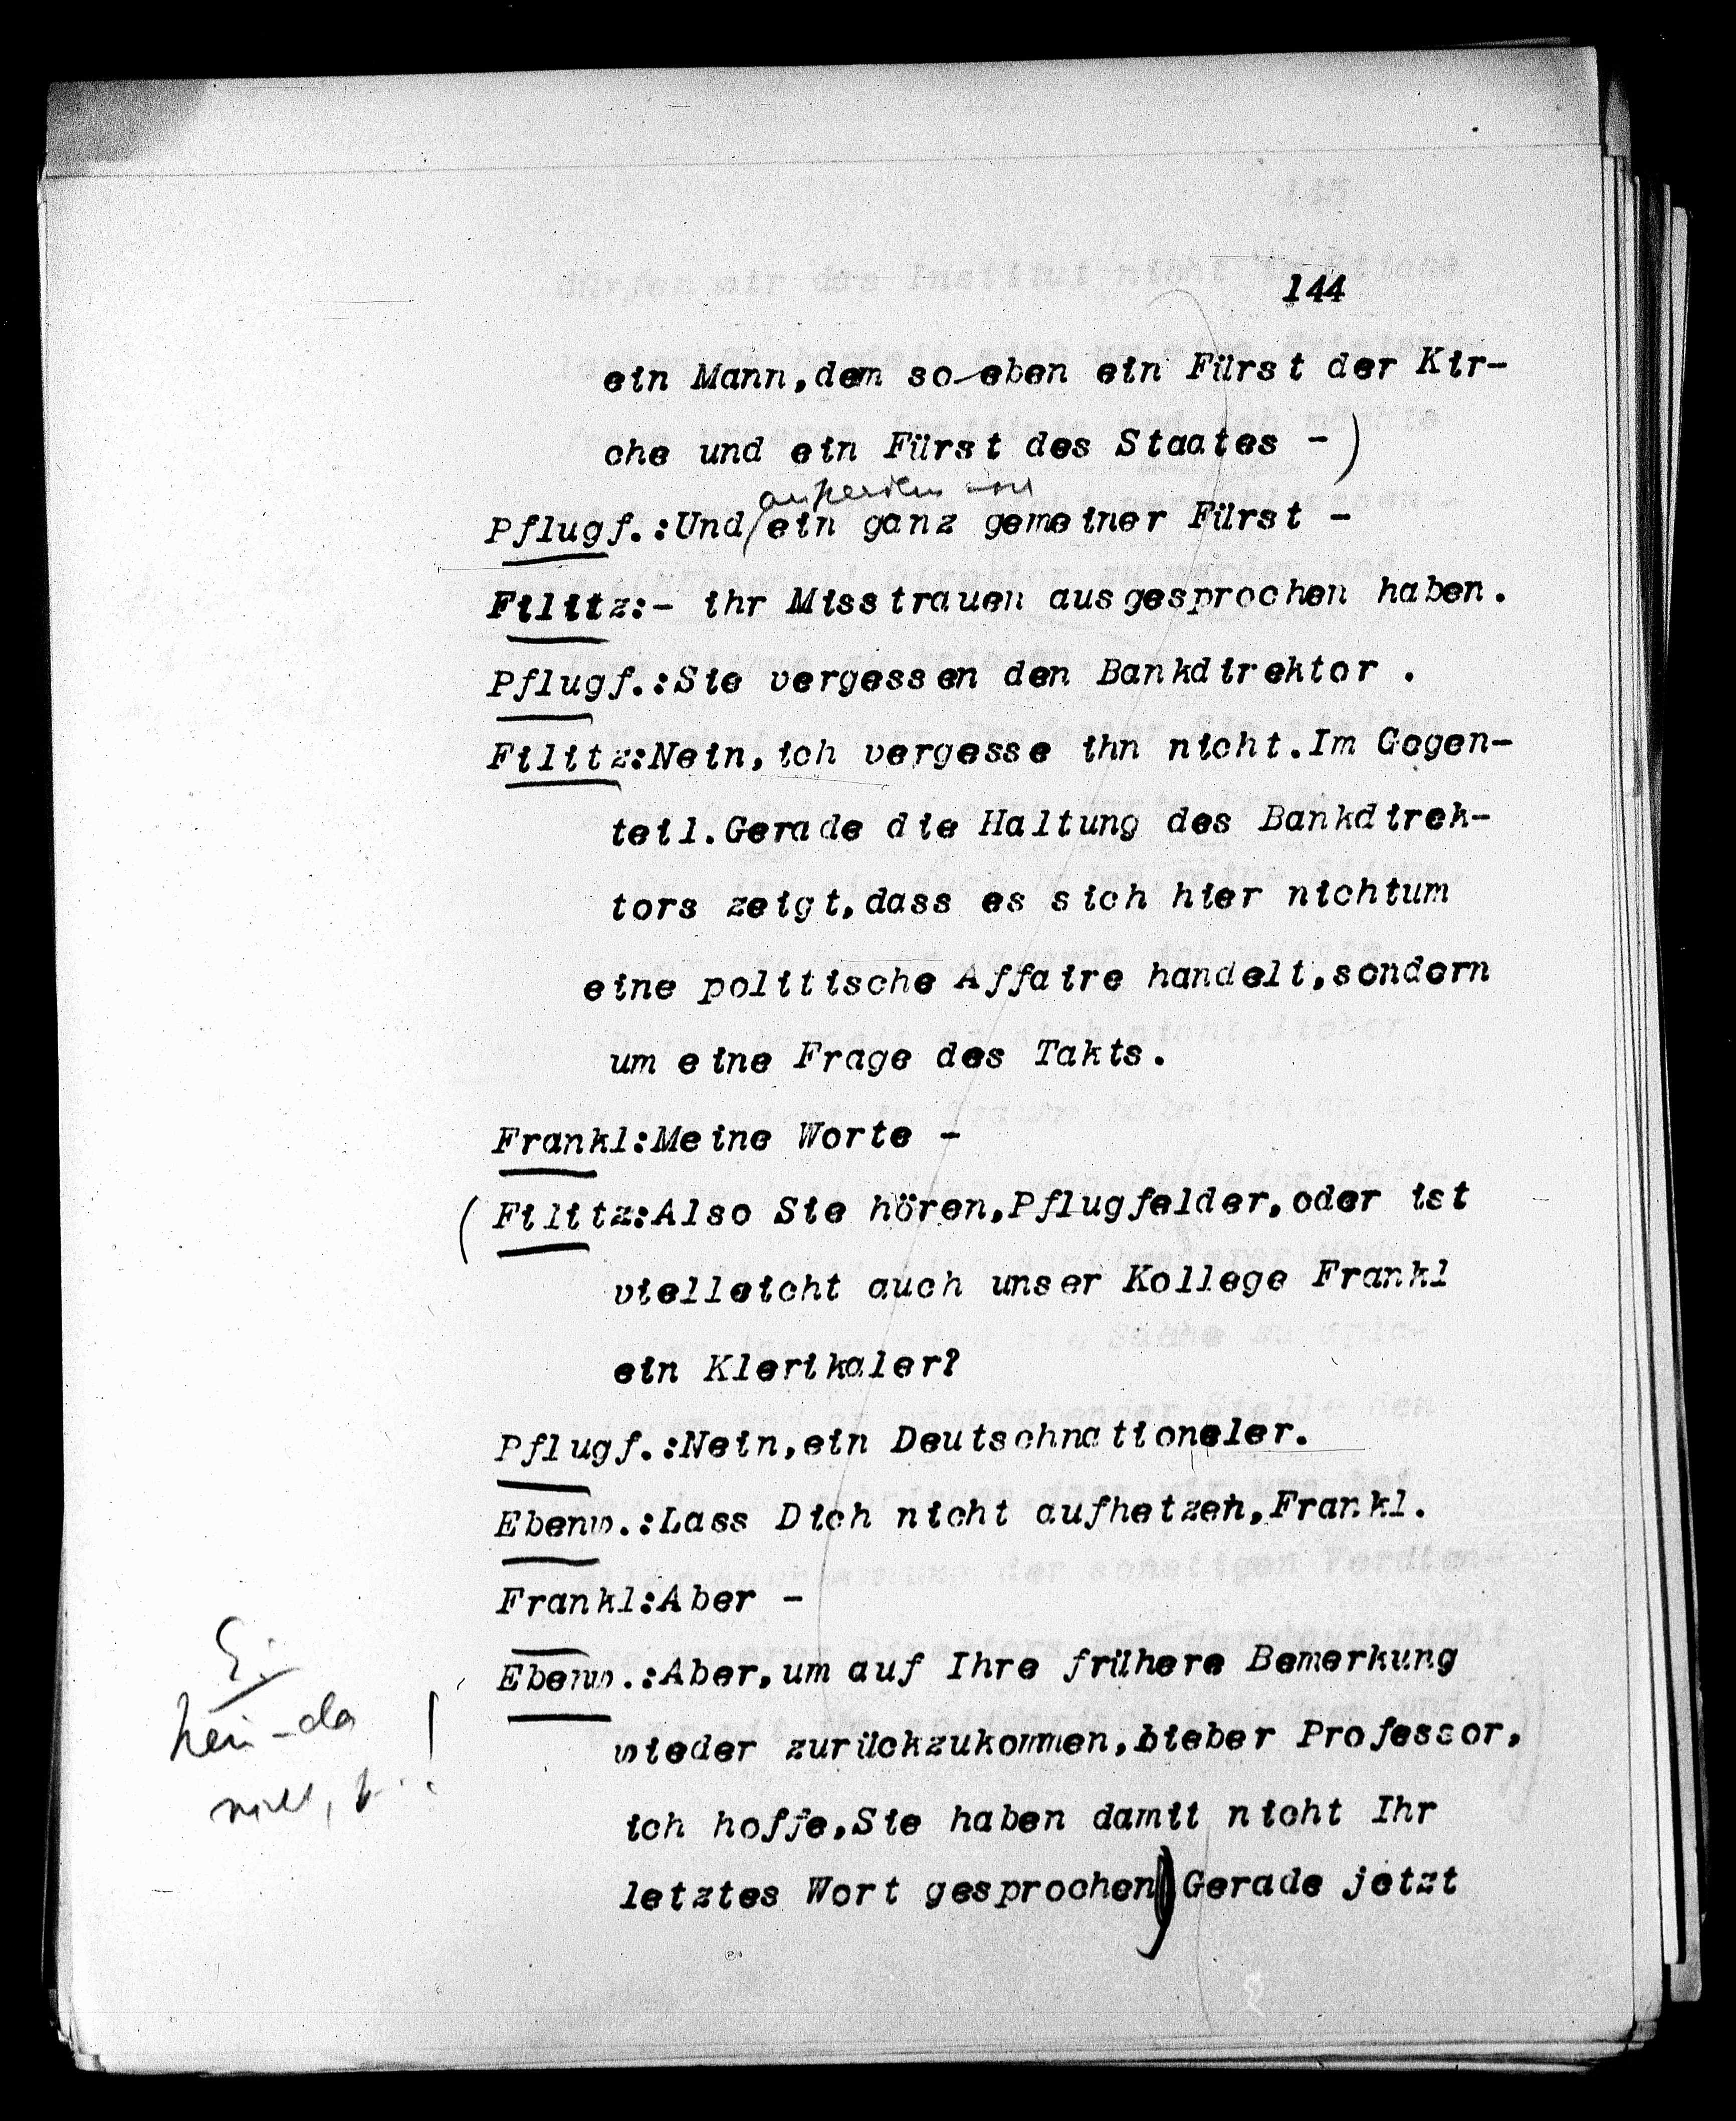 144
ein Mann,dem so eben ein Fürst der Kir-
che und ein Fürst des Staates - )
ausserdem noch
Pflugf.:Und/ein ganz gemeiner Fürst -
Filitz:- ihr Misstrauen ausgesprochen haben.
Pflugf.:Sie vergessen den Bankdirektor .
Filitz:Nein,ich vergesse ihn nicht.Im Gegen-
teil.Gerade die Haltung des Bankdirek-
tors zeigt,dass es sich hier nichtum
eine politische Affaire handelt,sondern
um eine Frage des Takts.
Frankl:Meine Worte -
(Filitz:Also Sie hören,Pflugfelder,oder ist
vielleicht auch unser Kollege Frankl
ein Klerikaler?
Pflugf.:Nein,ein Deutschnationeler.
Ebenw.:Lass Dich nicht aufhetzen,Frankl.
Frankl:Aber -
Ebenw.:Aber,um auf Ihre frühere Bemerkung
wieder zurückzukommen,lieber Professor,
ich hoffe,Sie haben damit nicht Ihr
letztes Wort gesprochen) Gerade jetzt